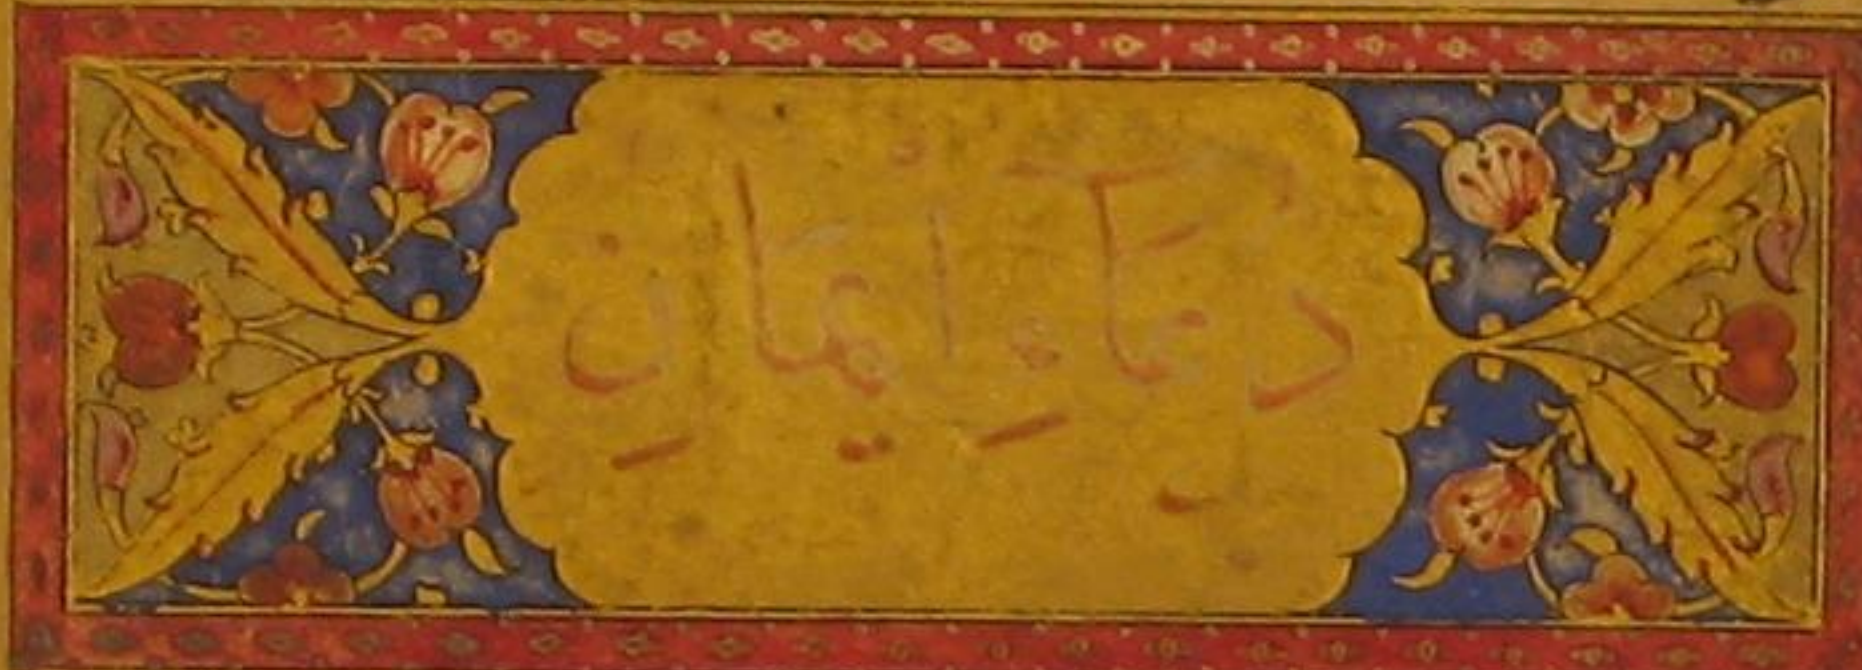 دُعَاءِ ايمَانِ